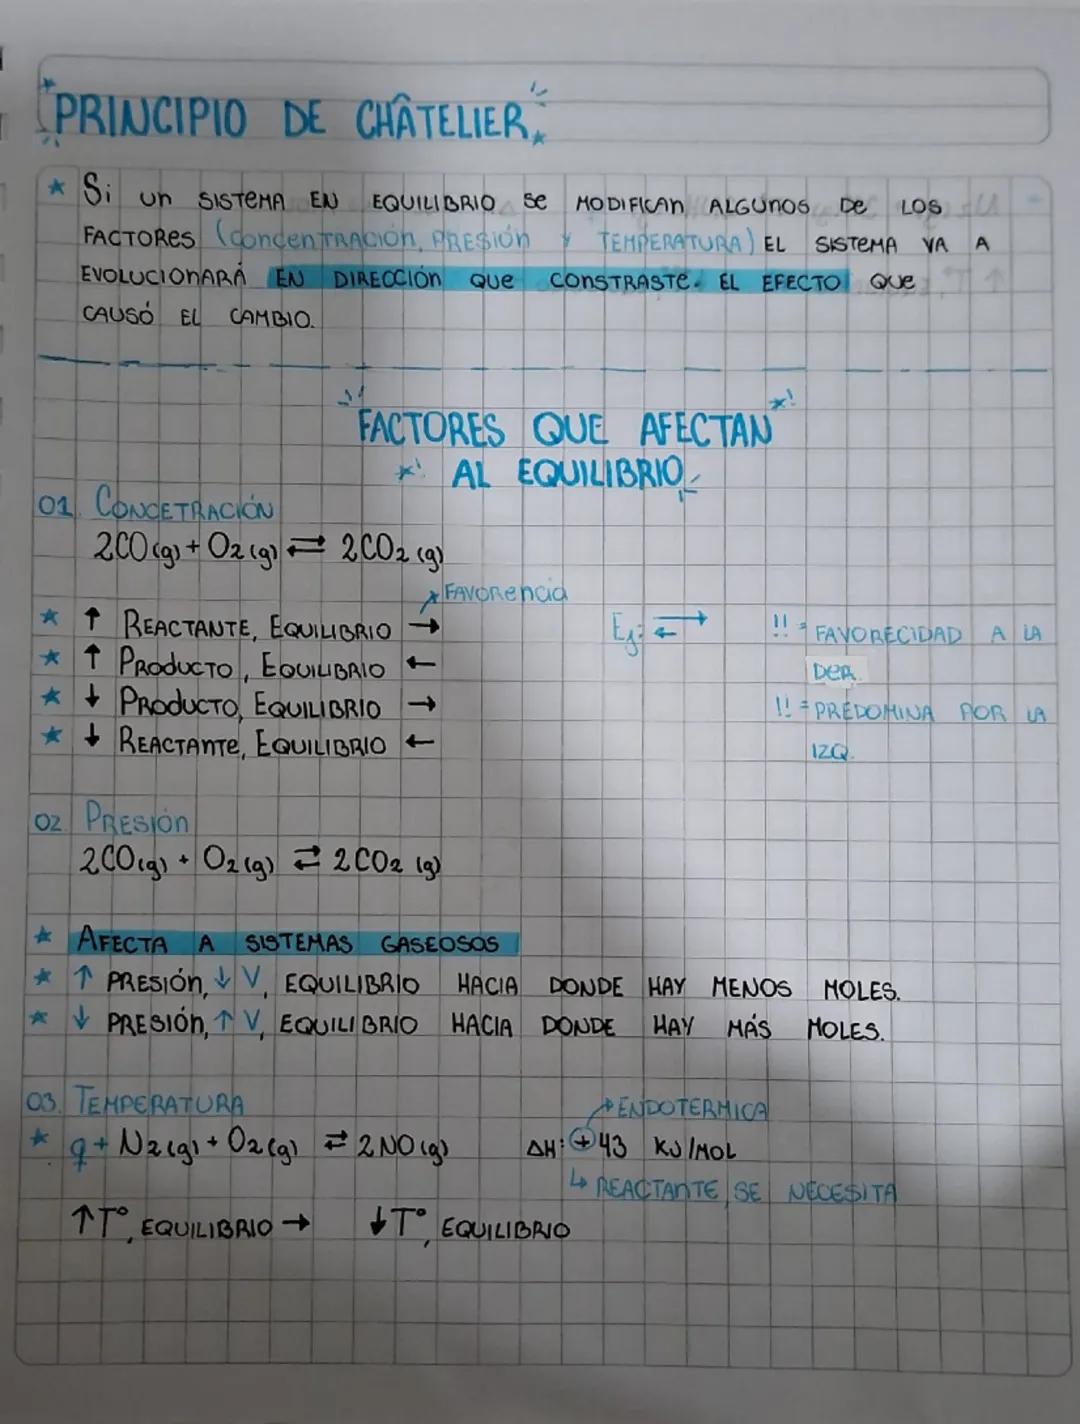 PRINCIPIO DE CHÂTELIER
Si un SISTEMA EN EQUILIBRIO se MODIFICAN ALGUNOS DE LOS
FACTORES (CONCENTRACIÓN, PRESIÓN Y TEMPERATURA) EL SISTEMA VA A
EVOLUCIONARÁ EN DIRECCIÓN QUE CONSTRASTE EL EFECTO QUE
CAUSÓ EL CAMBIO.
FACTORES QUE AFECTAN
AL EQUILIBRIO
01. CONCETRACIÓN
2CO(g) + O2(g) ⇄ 2CO2(g)
FAVORENCIA
↑ REACTANTE, EQUILIBRIO →
↑ PRODUCTO, EQUILIBRIO ←
↓ PRODUCTO, EQUILIBRIO →
↓ REACTANTE, EQUILIBRIO ←
Ej: ⇄ !! = FAVORECIDAD A LA
DER.
!! = PREDOMINA POR LA
IZQ.
02. PRESIÓN
2CO(g) + O2(g) ⇄ 2CO2(g)
AFECTA A SISTEMAS GASEOSOS
↑ PRESIÓN, ↓ V, EQUILIBRIO HACIA DONDE HAY MENOS MOLES.
↓ PRESIÓN, ↑ V, EQUILIBRIO HACIA DONDE HAY MÁS MOLES.
03. TEMPERATURA
→ ENDOTERMICA
q + N2(g) + O2(g) ⇄ 2NO(g) ΔH: +43 KJ/MOL
↳ REACTANTE SE NECESITA
↑T°, EQUILIBRIO → ↓T°, EQUILIBRIO